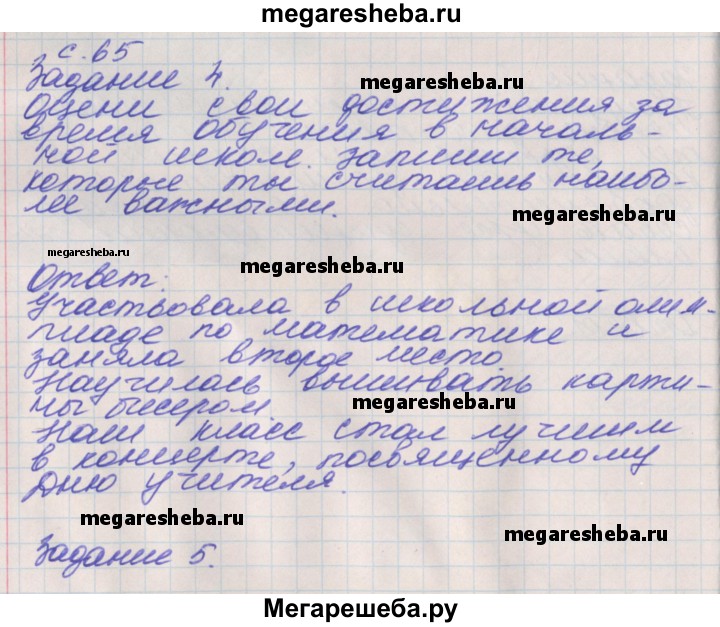 megaresheba.ru
с. 65
Задание 4.
megaresheba.ru
Оцени свои достужения за
время обучения в началь-
ной школе. Запиши те,
которые ты считаешь наибо-
лее важными.
megaresheba.ru
megaresheba.ru
megaresheba.ru
Ответ:
Участвовала в школьной олим-
пиаде по математике и
заняла второе место.
Научилась вышивать карти-
ны бисером.
megaresheba.ru
Наш класс стал лучшим
в концерте, посвященному
Дню учителя.
megaresheba.ru
megaresheba.ru
Задание 5.
Мегарешеба.ру